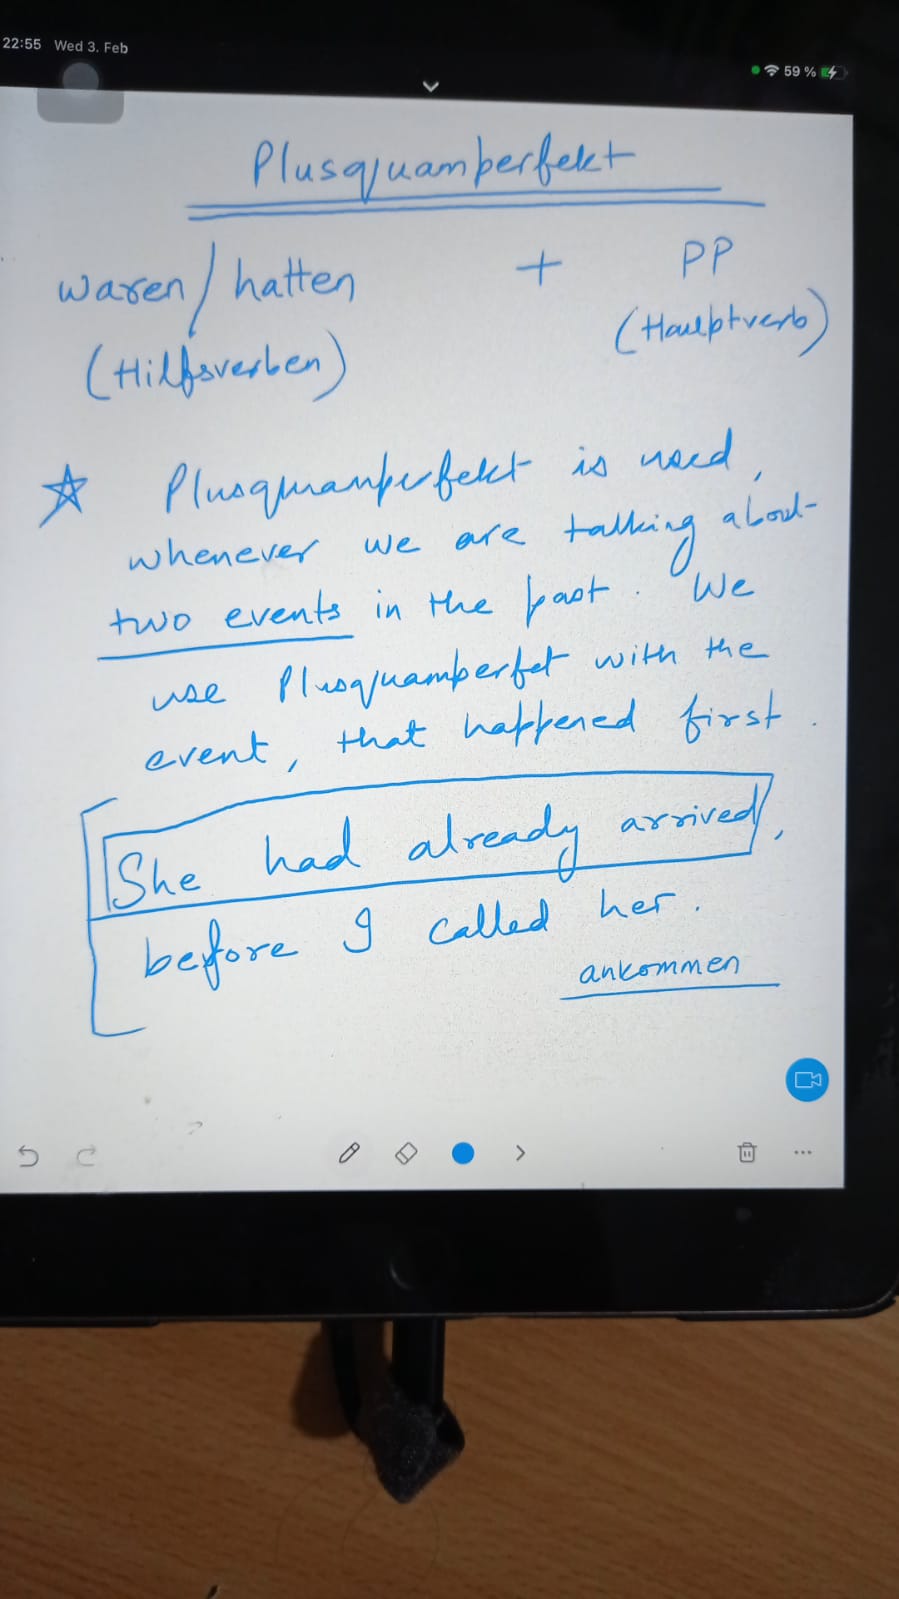 22:55 Wed 3. Feb
59 %
Plusquamperfekt
waren / hatten + PP
(Hilfsverben) (Hauptverb)
☆ Plusquamperfekt is used,
whenever we are talking about
two events in the past. We
use Plusquamperfet with the
event, that happened first.
She had already arrived,
before I called her.
ankommen